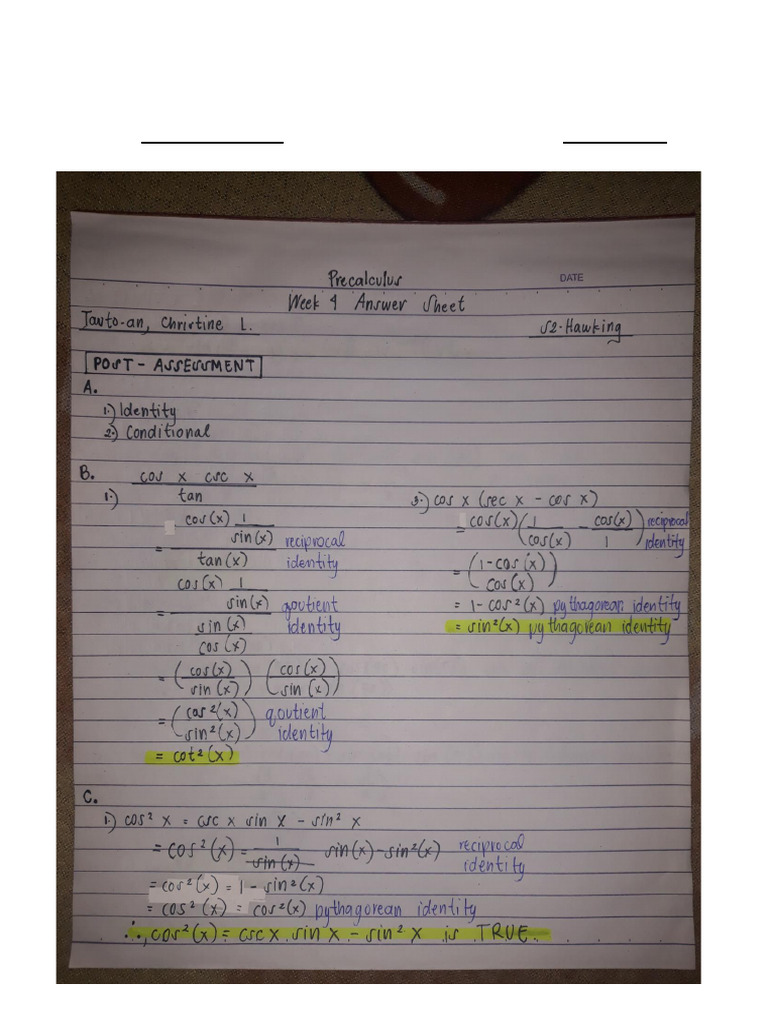 Precalculus
DATE
Week 4 Answer Sheet
Tauto-an, Christine L.
S2-Hawking
POST - ASSESSMENT
A.
1.) Identity
2.) Conditional
B.
1.) cos x csc x
tan
= cos(x) 1
sin(x) reciprocal
tan(x) identity
= cos(x) 1
sin(x) qoutient
sin(x) identity
cos(x)
= (cos(x) / sin(x)) (cos(x) / sin(x))
= (cos²(x) / sin²(x)) qoutient
identity
= cot²(x)
3.) cos x (sec x - cos x)
= cos(x) (1 / cos(x) - cos(x) / 1) reciprocal
identity
= (1-cos(x) / cos(x))
= 1-cos²(x) pythagorean identity
= sin²(x) pythagorean identity
C.
1.) cos² x = csc x sin x - sin² x
= cos²(x) = 1 / sin(x) sin(x)-sin²(x) reciprocal
identity
= cos²(x) = 1 - sin²(x)
= cos²(x) = cos²(x) pythagorean identity
∴, cos²(x) = csc x sin x - sin² x is TRUE.